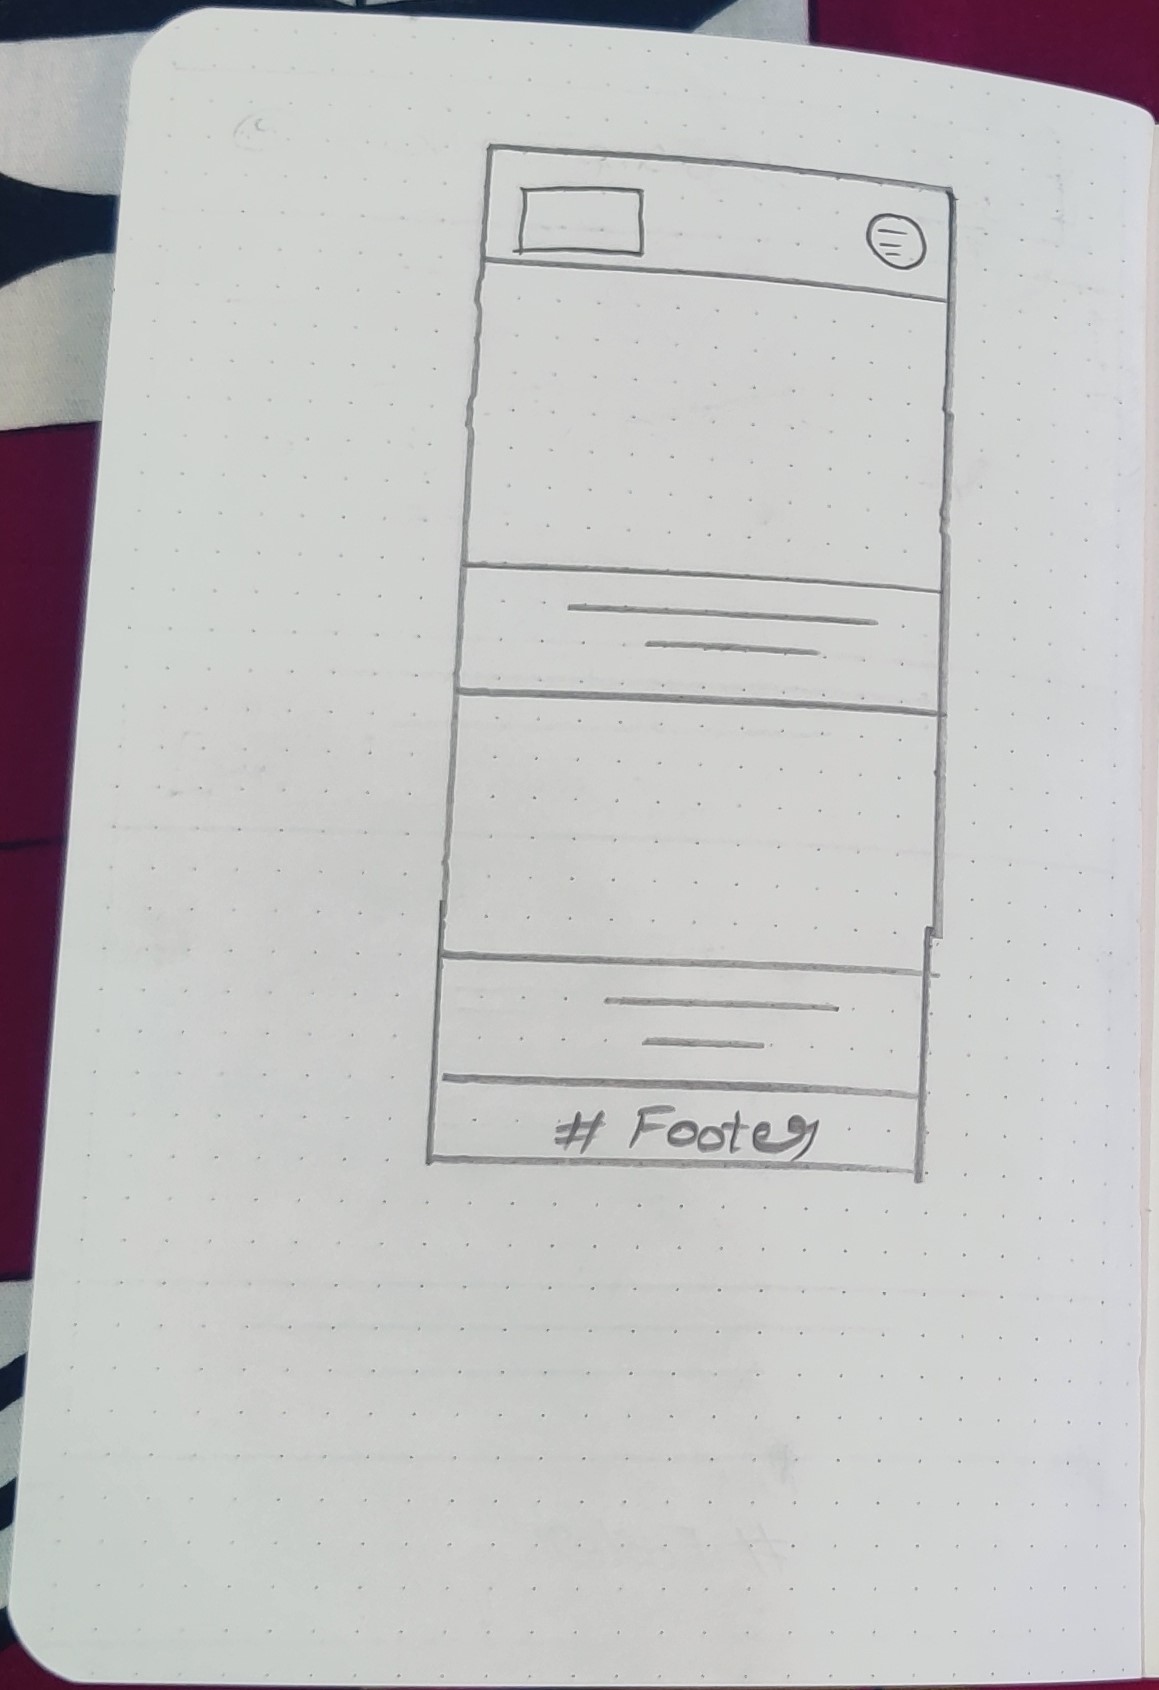 # Footer